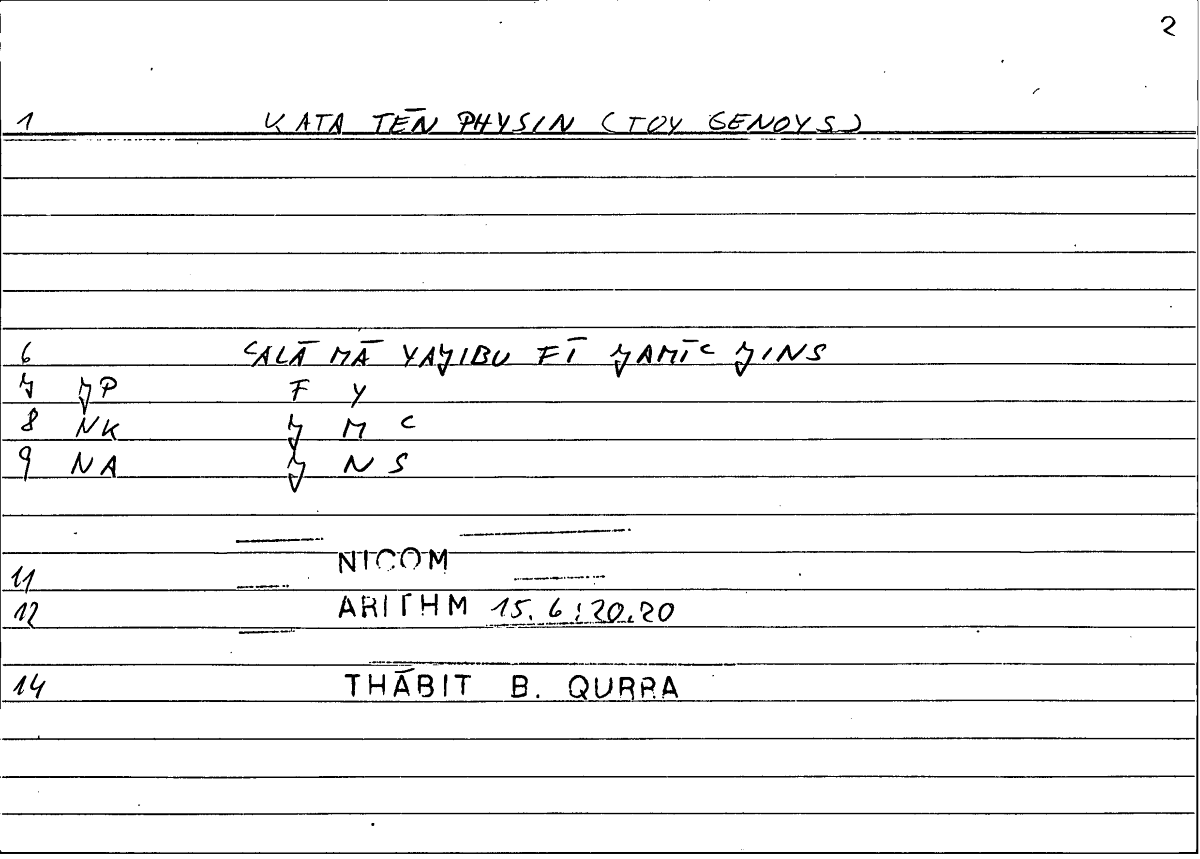 2
1 KATA TĒN PHYSIN (TOY GENOYS)
6 ᶜALĀ MĀ YAJ̌IBU FĪ J̌AMĪᶜ J̌INS
7 J̌P F Y
8 NK J̌ M ᶜ
9 NA J̌ N S
11 NICOM
12 ARITHM 15.6:20.20
14 THĀBIT B. QURRA